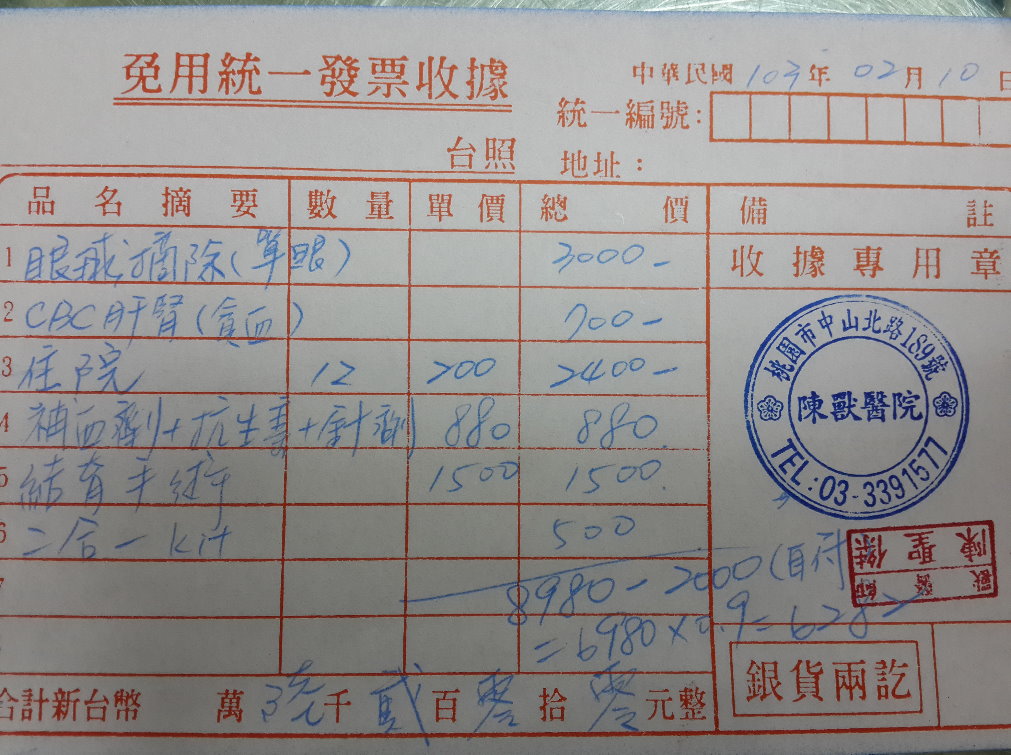 免用統一發票收據
中華民國103年02月10日
統一編號:
台照 地址:
品名摘要 數量 單價 總價 備註
1 眼球摘除(單眼) 3000-
收據專用章
2 CBC肝腎(貧血) 700-
3 住院 12 200 2400-
4 補血劑+抗生素+針劑 880 880
5 結育手術 1500 1500
6 二合一 kit 500
7 8980-2000(自付
=6980×0.9=6282
合計新台幣 萬 陸千貳百零拾零元整
銀貨兩訖
桃園市中山北路189號
陳獸醫院
TEL:03-3391577
獸醫師
陳聖傑